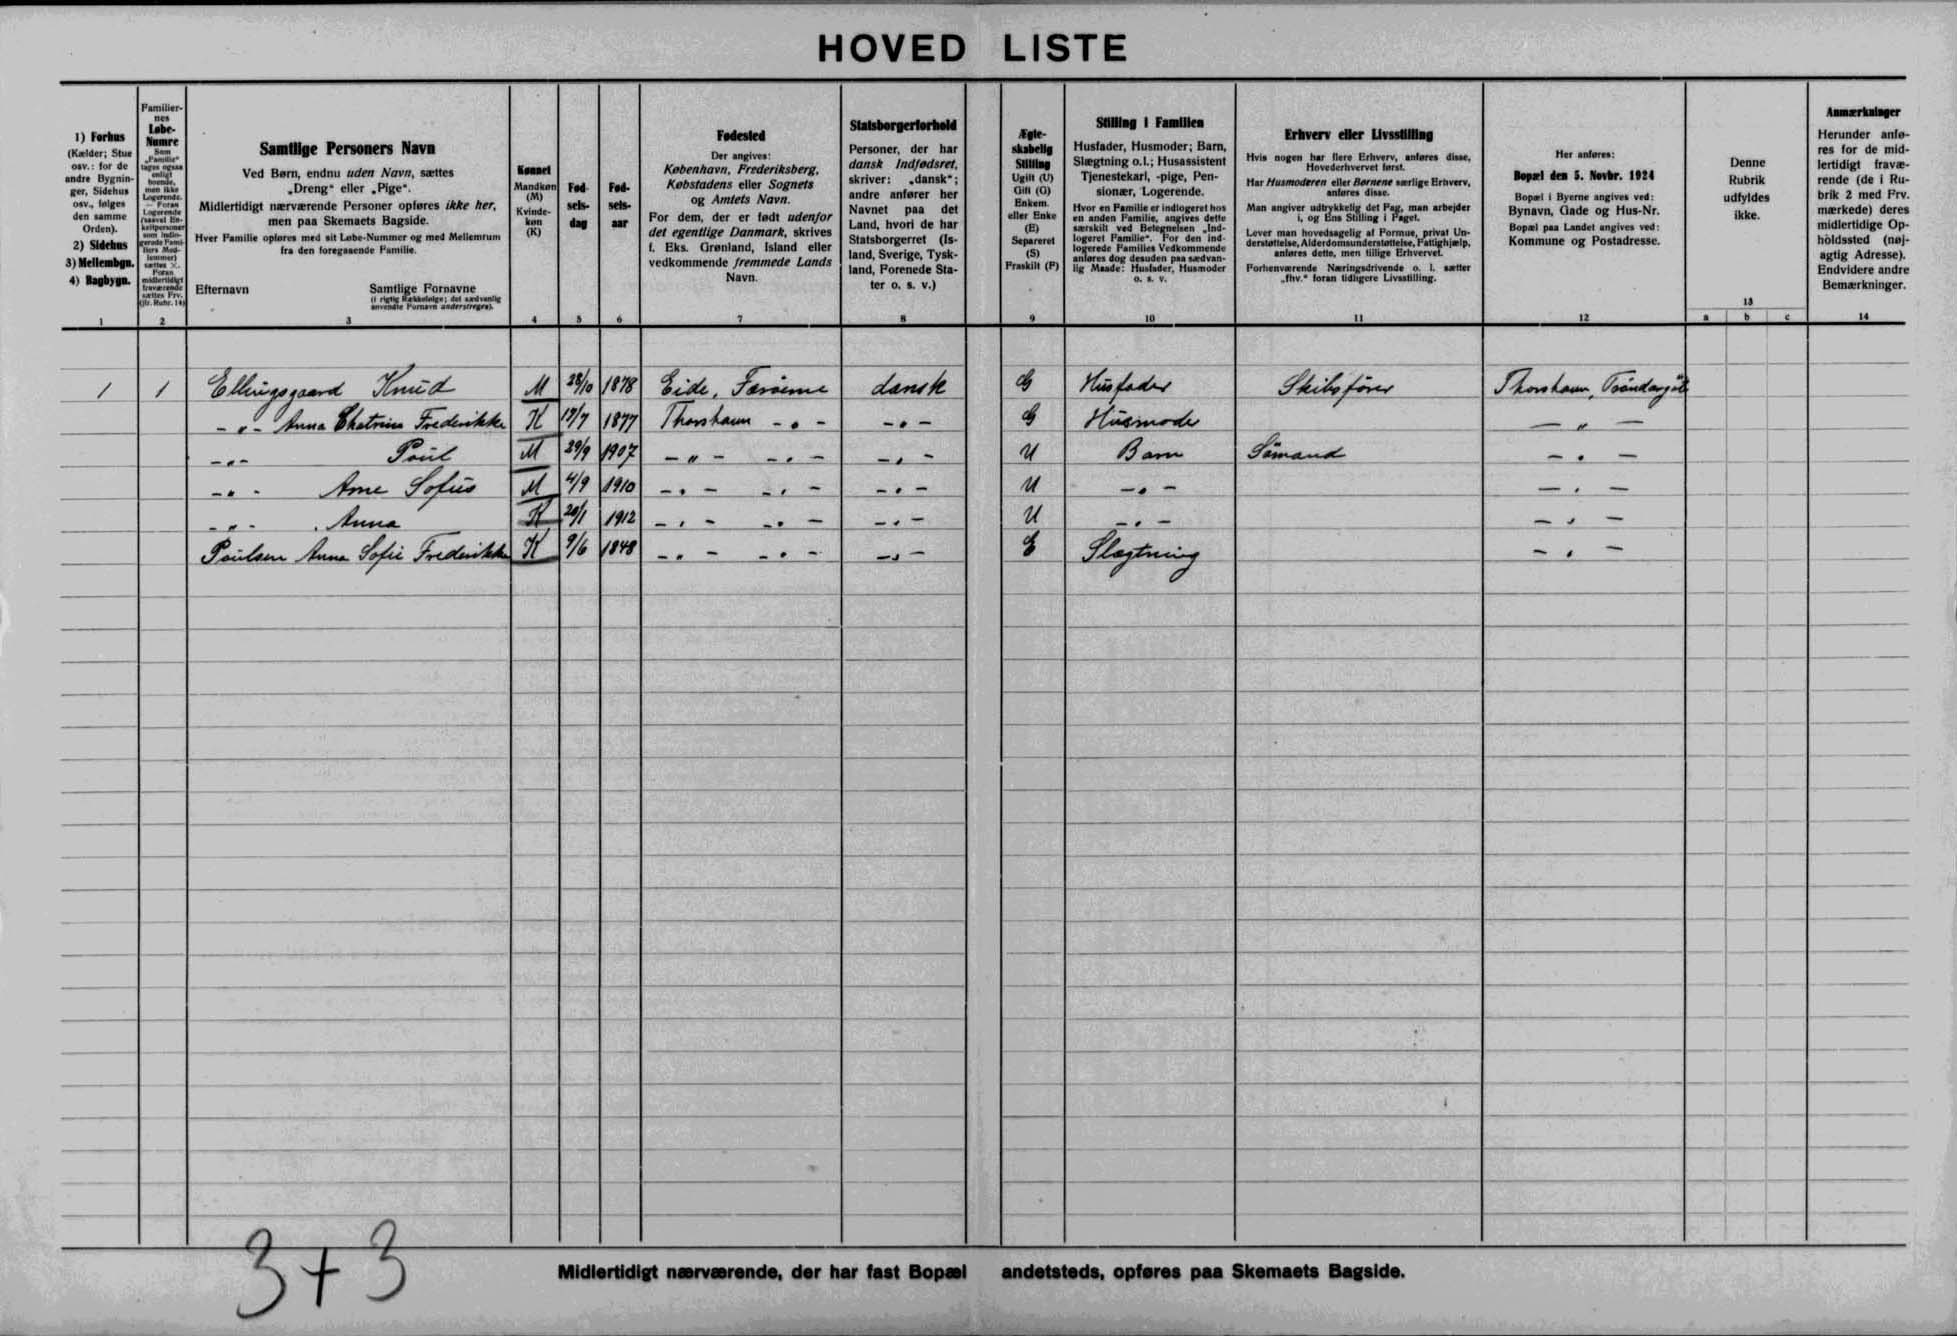 HOVED LISTE
1) Forhus
(Kælder; Stue
osv.: for de
andre Bygnin-
ger, Sidehus
osv., følges
den samme
Orden).
2) Sidehus
3) Mellembgn.
4) Bagbygn.
1
Familier-
nes
Løbe-
Numre
Som
„Familie“
tages ogsaa
enligt
boende,
men ikke
Logerende.
— Foran
Logerende
(saavel En-
keltpersoner
som indlo-
gerede Fami-
liers Med-
lemmer)
sættes ×.
Foran
midlertidigt
fraværende
sættes Frv.
(jfr. Rubr. 14)
2
Samtlige Personers Navn
Ved Børn, endnu uden Navn, sættes
„Dreng“ eller „Pige“.
Midlertidigt nærværende Personer opføres ikke her,
men paa Skemaets Bagside.
Hver Familie opføres med sit Løbe-Nummer og med Mellemrum
fra den foregaaende Familie.
Efternavn Samtlige Fornavne
(i rigtig Rækkefølge; det sædvanlig
anvendte Fornavn understreges).
3
Kønnet
Mandkøn
(M)
Kvinde-
køn
(K)
4
Fød-
sels-
dag
5
Fød-
sels-
aar
6
Fødested
Der angives:
København, Frederiksberg,
Købstadens eller Sognets
og Amtets Navn.
For dem, der er født udenfor
det egentlige Danmark, skrives
f. Eks. Grønland, Island eller
vedkommende fremmede Lands
Navn.
7
Statsborgerforhold
Personer, der har
dansk Indfødsret,
skriver: „dansk“;
andre anfører her
Navnet paa det
Land, hvori de har
Statsborgerret (Is-
land, Sverige, Tysk-
land, Forenede Sta-
ter o. s. v.)
8
Ægte-
skabelig
Stilling
Ugift (U)
Gift (G)
Enkem.
eller Enke
(E)
Separeret
(S)
Fraskilt (F)
9
Stilling i Familien
Husfader, Husmoder; Barn,
Slægtning o.l.; Husassistent
Tjenestekarl, -pige, Pen-
sionær, Logerende.
Hvor en Familie er indlogeret hos
en anden Familie, angives dette
særskilt ved Betegnelsen „Ind-
logeret Familie“. For den ind-
logerede Families Vedkommende
anføres dog desuden paa sædvan-
lig Maade: Husfader, Husmoder
o. s. v.
10
Erhverv eller Livsstilling
Hvis nogen har flere Erhverv, anføres disse,
Hovederhvervet først.
Har Husmoderen eller Børnene særlige Erhverv,
anføres disse.
Man angiver udtrykkelig det Fag, man arbejder
i, og Ens Stilling i Faget.
Lever man hovedsagelig af Formue, privat Un-
derstøttelse, Alderdomsunderstøttelse, Fattighjælp,
anføres dette, men tillige Erhvervet.
Forhenværende Næringsdrivende o. l. sætter
„fhv.“ foran tidligere Livsstilling.
11
Her anføres:
Bopæl den 5. Novbr. 1924
Bopæl i Byerne angives ved:
Bynavn, Gade og Hus-Nr.
Bopæl paa Landet angives ved:
Kommune og Postadresse.
12
Denne
Rubrik
udfyldes
ikke.
13
a b c
Anmærkninger
Herunder anfø-
res for de mid-
lertidigt fravæ-
rende (de i Ru-
brik 2 med Frv.
mærkede) deres
midlertidige Op-
holdssted (nøj-
agtig Adresse).
Endvidere andre
Bemærkninger.
14
1 1 Ellingsgaard Knud M 28/10 1878 Eide, Færøerne dansk G Husfader Skibsfører Thorshavn,
-„- Anna Chatrina Frederikke K 19/7 1877 Thorshavn -„- -„- G Husmoder -„-
-„- Poul M 29/9 1907 -„- -„- -„- U Barn Sømand -„-
-„- Arne Sofus M 4/9 1910 -„- -„- -„- U -„- -„-
-„- Anna K 20/1 1912 -„- -„- -„- U -„- -„-
Poulsen Anna Sofie Frederikke K 9/6 1848 -„- -„- -„- E Slægtning -„-
3+3
Midlertidigt nærværende, der har fast Bopæl andetsteds, opføres paa Skemaets Bagside.